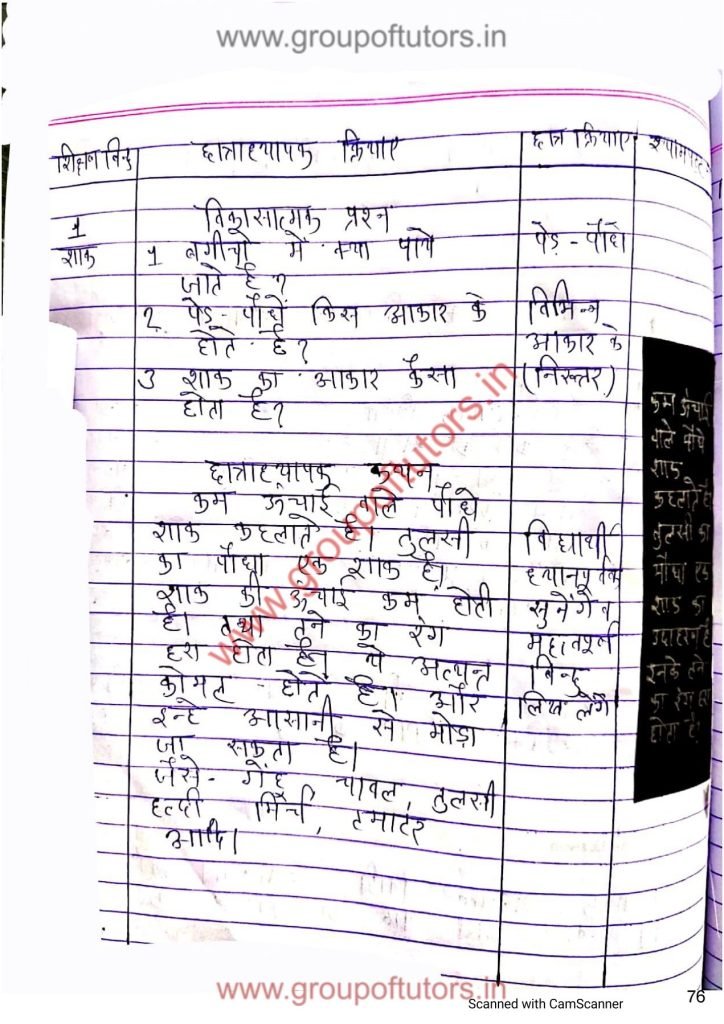 www.groupoftutors.in
शिक्षण बिन्दु
छात्राध्यापक क्रियाए
छात्र क्रियाए
श्यामपट्ट
1
शाक
विकासात्मक प्रश्न
1 बगीचो में क्या पाये
जाते है?
2 पेड़-पौधें किस आकार के
होते है?
3 शाक का आकार कैसा
होता है?
पेड़-पौधे
विभिन्न
आकार के
(निरूत्तर)
छात्राध्यापक कथन
कम ऊंचाई वाले पौधे
शाक कहलाते है। तुलसी
का पौधा एक शाक है।
शाक की ऊंचाई कम होती
है। तथा तने का रंग
हरा होता है। ये अत्यन्त
कोमल होते है। और
इन्हे आसानी से मोड़ा
जा सकता है।
जैसे- गेंहू, चावल, तुलसी
हल्दी मिर्च, टमाटर
आदि।
विद्यार्थी
ध्यानपूर्वक
सुनेंगे व
महत्वपूर्ण
बिन्दु
लिख लेंगे
कम ऊंचाई
वाले पौधे
शाक
कहलाते है।
तुलसी का
पौधा एक
शाक का
उदाहरण है
इनके तने
का रंग हरा
होता है।
www.groupoftutors.in
www.groupoftutors.in
Scanned with CamScanner
76